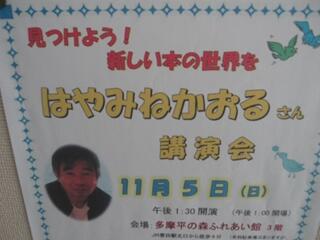 見つけよう！
新しい本の世界を
はやみねかおるさん
講演会
11月5日（日）
午後1:30開演（午後1:00開場）
会場：多摩平の森ふれあい館 3階